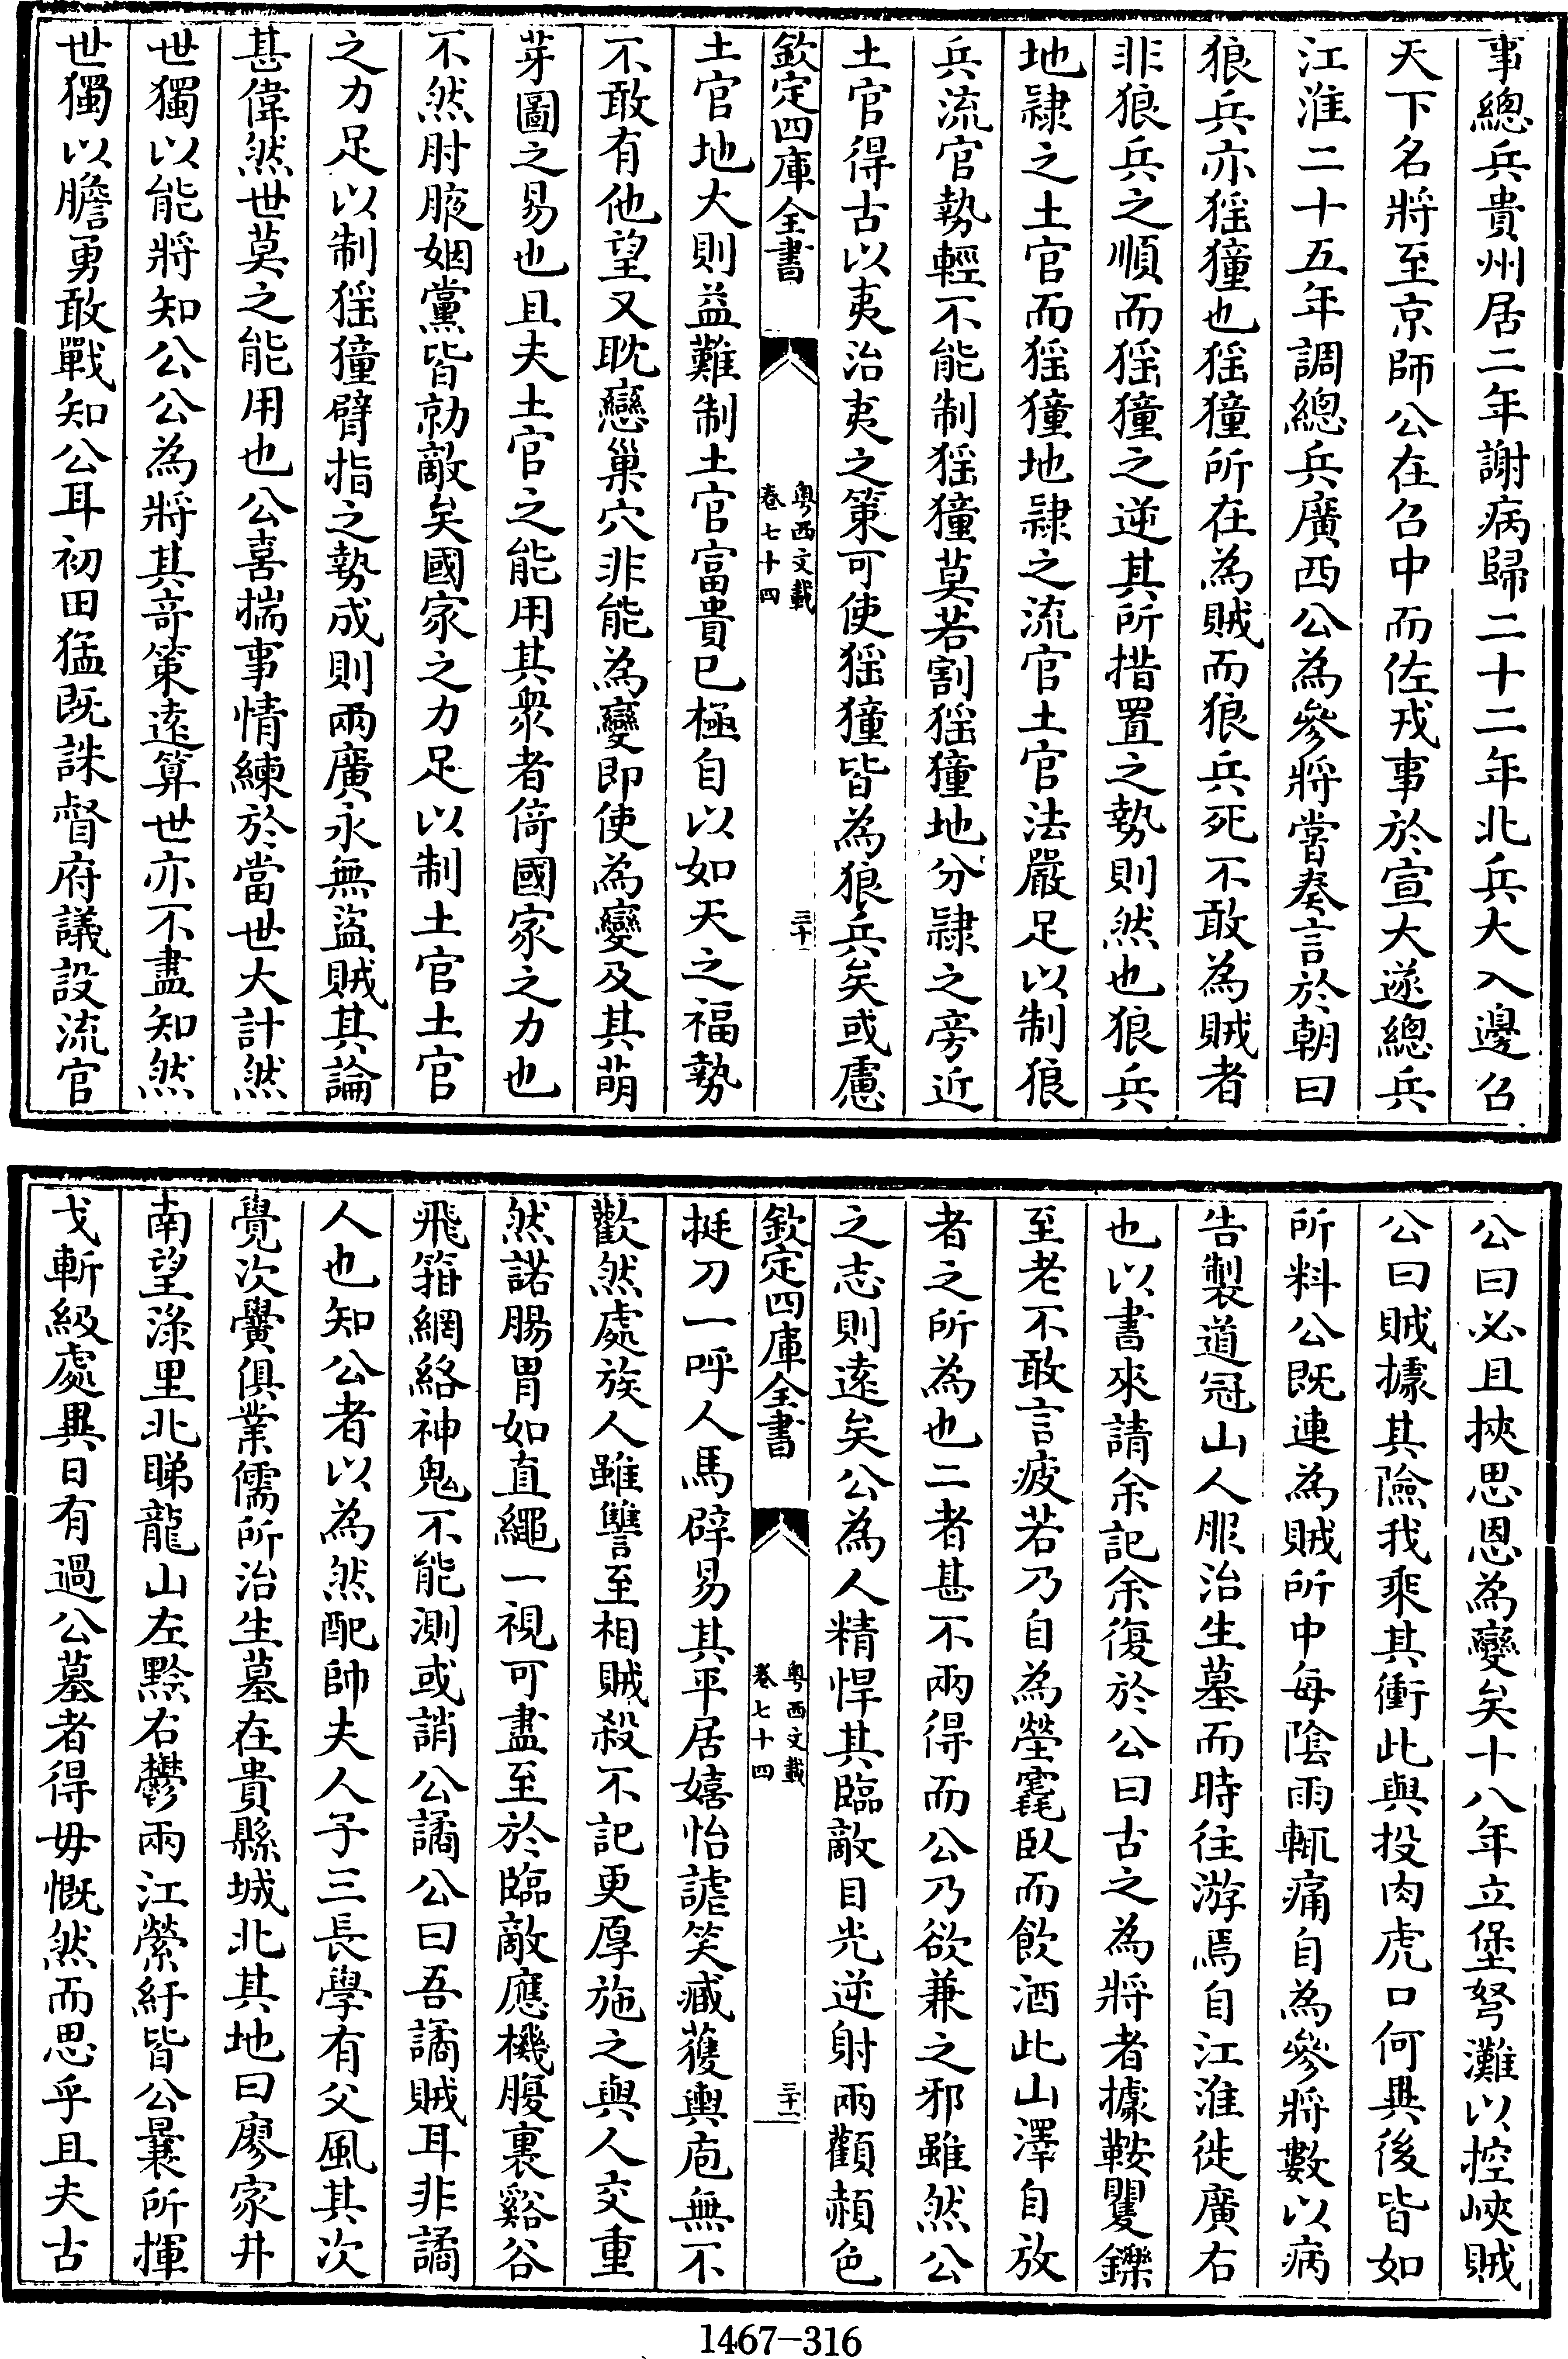 事總兵貴州居二年謝病歸二十二年北兵大入邊召
天下名將至京師公在召中而佐戎事於宣大遂總兵
江淮二十五年調總兵廣西公為參將嘗奏言於朝曰
狼兵亦猺獞也猺獞所在為賊而狼兵死不敢為賊者
非狼兵之順而猺獞之逆其所措置之勢則然也狼兵
地隷之土官而猺獞地隷之流官土官法嚴足以制狼
兵流官勢輕不能制猺獞莫若割猺獞地分隷之旁近
土官得古以夷治夷之策可使猺獞皆為狼兵矣或慮
欽定四庫全書
粵西文載
卷七十四
三十
土官地大則益難制土官富貴已極自以如天之福勢
不敢有他望又耽戀巢穴非能為變即使為變及其萌
芽圖之易也且夫土官之能用其衆者倚國家之力也
不然肘腋姻黨皆勍敵矣國家之力足以制土官土官
之力足以制猺獞臂指之勢成則兩廣永無盜賊其論
甚偉然世莫之能用也公喜揣事情練於當世大計然
世獨以能將知公公為將其奇策遠算世亦不盡知然
世獨以膽勇敢戰知公耳初田猛既誅督府議設流官
公曰必且挾思恩為變矣十八年立堡弩灘以控峽賊
公曰賊據其險我乘其衝此與投肉虎口何異後皆如
所料公既連為賊所中每陰雨輒痛自為參將數以病
告製道冠山人服治生墓而時往游焉自江淮徙廣右
也以書來請余記余復於公曰古之為將者據鞍矍鑠
至老不敢言疲若乃自為塋窀臥而飲酒此山澤自放
者之所為也二者甚不兩得而公乃欲兼之邪雖然公
之志則遠矣公為人精悍其臨敵目光逆射兩顴赬色
欽定四庫全書
粵西文載
卷七十四
三十一
挺刀一呼人馬辟易其平居嬉怡謔笑臧獲輿庖無不
歡然處族人雖讐至相賊殺不記更厚施之與人交重
然諾腸胃如直繩一視可盡至於臨敵應機腹裏谿谷
飛箝網絡神鬼不能測或誚公譎公曰吾譎賊耳非譎
人也知公者以為然配帥夫人子三長學有父風其次
覺次黌俱業儒所治生墓在貴縣城北其地曰廖家井
南望淥里北睇龍山左黔右鬱兩江縈紆皆公曩所揮
戈斬級處異日有過公墓者得毋慨然而思乎且夫古
1467-316